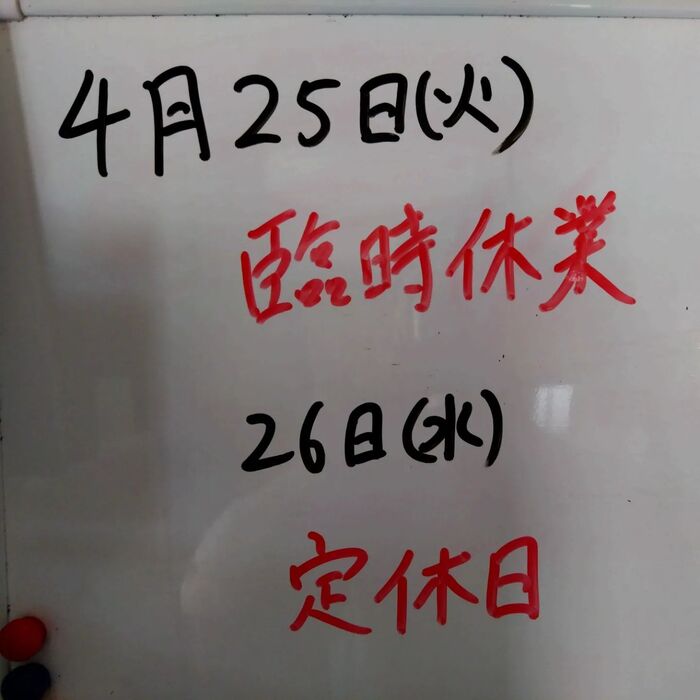 4月25日(火)
臨時休業
26日(水)
定休日